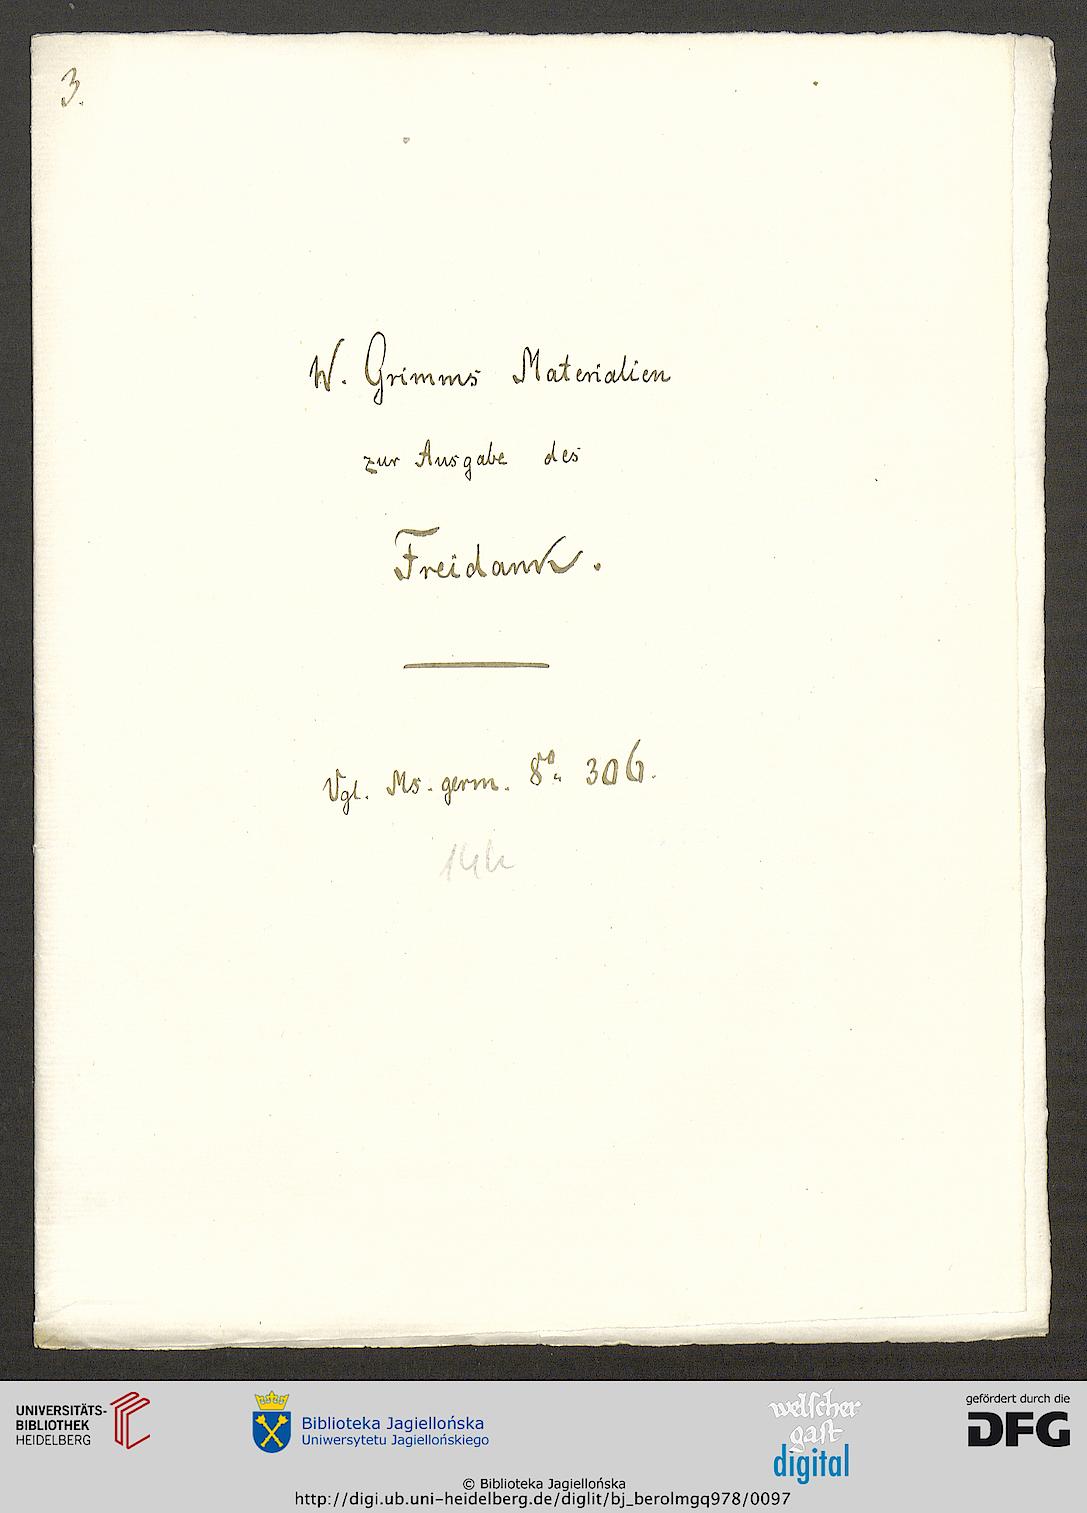 3.
W. Grimms Materialien
zur Ausgabe des
Freidank.
Vgl. Ms. germ. 8º. 306.
UNIVERSITÄTS-
BIBLIOTHEK
HEIDELBERG
Biblioteka Jagiellońska
Uniwersytetu Jagiellońskiego
welscher
gast
digital
gefördert durch die
DFG
© Biblioteka Jagiellońska
http://digi.ub.uni-heidelberg.de/diglit/bj_berolmgq978/0097